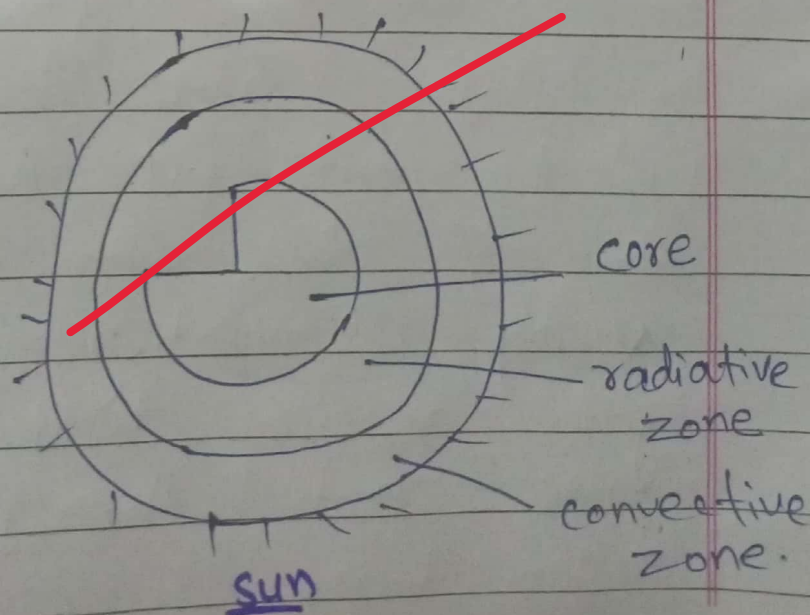 core
radiative
zone
convective
zone.
sun